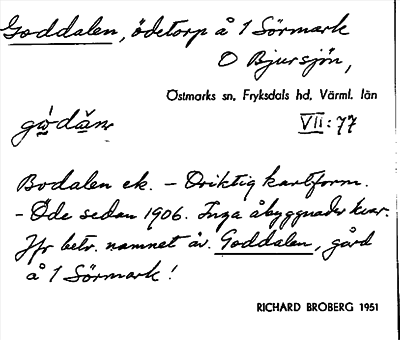 Goddalen, ödetorp å 1 Sörmark
O Bjursjön,
Östmarks sn, Fryksdals hd, Värml. län
VII: 77
Bodalen ek. – Oriktig kartform.
– Öde sedan 1906. Inga åbyggnader kvar.
Jfr betr. namnet äv. Goddalen, gård
å 1 Sörmark!
RICHARD BROBERG 1951